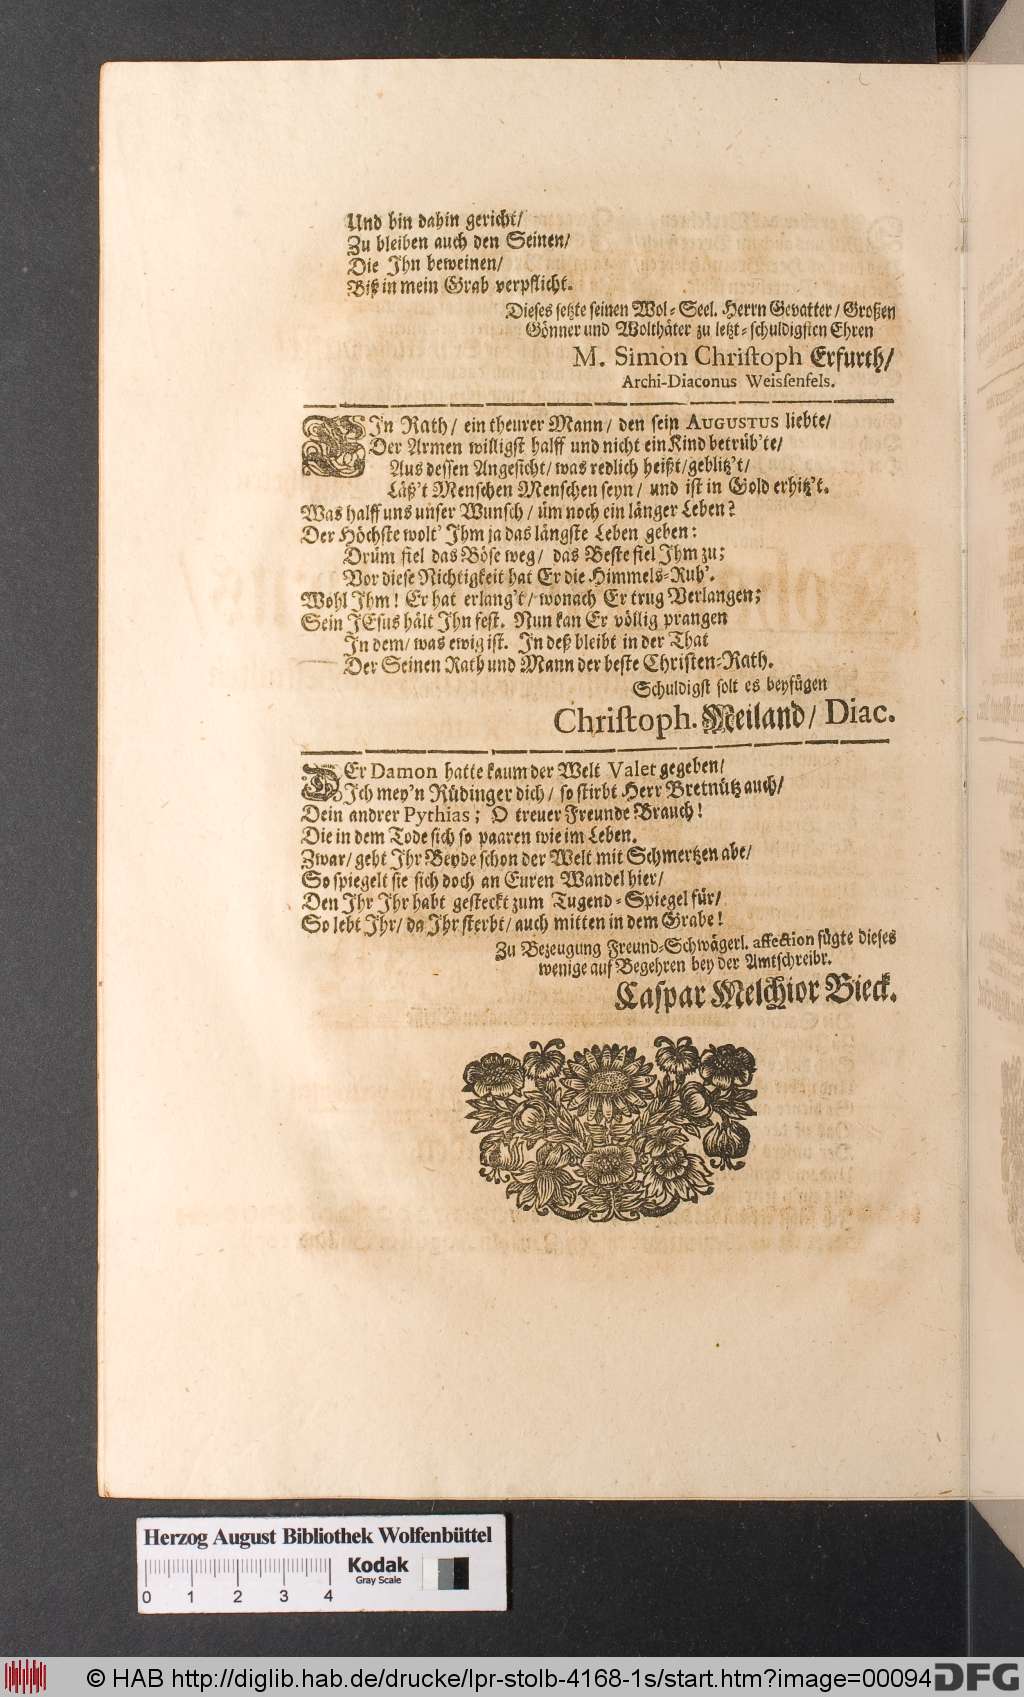 Und bin dahin gericht/
Zu bleiben auch den Seinen/
Die Ihn beweinen/
Biß in mein Grab verpflicht.
Dieses setzte seinen Wol-Seel. Herrn Gevatter/ Großen
Gönner und Wolthäter zu letzt-schuldigsten Ehren
M. Simon Christoph Erfurth/
Archi-Diaconus Weissenfels.
EIn Rath/ ein theurer Mann/ den sein AUGUSTUS liebte/
Der Armen willigst halff und nicht ein Kind betrüb'te/
Aus dessen Angesicht/ was redlich heißt/ geblitz't/
Läß't Menschen Menschen seyn/ und ist in Gold erhitz't.
Was halff uns unser Wunsch/ üm noch ein länger Leben?
Der Höchste wolt' Ihm ja das längste Leben geben:
Drüm fiel das Böse weg/ das Beste fiel Ihm zu;
Vor diese Nichtigkeit hat Er die Himmels-Ruh'.
Wohl Ihm! Er hat erlang't/ wonach Er trug Verlangen;
Sein JEsus hält Ihn fest. Nun kan Er völlig prangen
In dem/ was ewig ist. In deß bleibt in der That
Der Seinen Rath und Mann der beste Christen-Rath.
Schuldigst solt es beyfügen
Christoph. Meiland/ Diac.
DEr Damon hatte kaum der Welt Valet gegeben/
Ich mey'n Rüdinger dich/ so stirbt Herr Bretnütz auch/
Dein andrer Pythias; O treuer Freunde Brauch!
Die in dem Tode sich so paaren wie im Leben.
Zwar/ geht Ihr Beyde schon der Welt mit Schmertzen abe/
So spiegelt sie sich doch an Euren Wandel hier/
Den Ihr Ihr habt gesteckt zum Tugend-Spiegel für/
So lebt Ihr/ da Ihr sterbt/ auch mitten in dem Grabe!
Zu Bezeugung Freund-Schwägerl. affection fügte dieses
wenige auf Begehren bey der Amtschreibr.
Caspar Melchior Bieck.
Herzog August Bibliothek Wolfenbüttel
Kodak
Gray Scale
0 1 2 3 4
© HAB http://diglib.hab.de/drucke/lpr-stolb-4168-1s/start.htm?image=00094
DFG